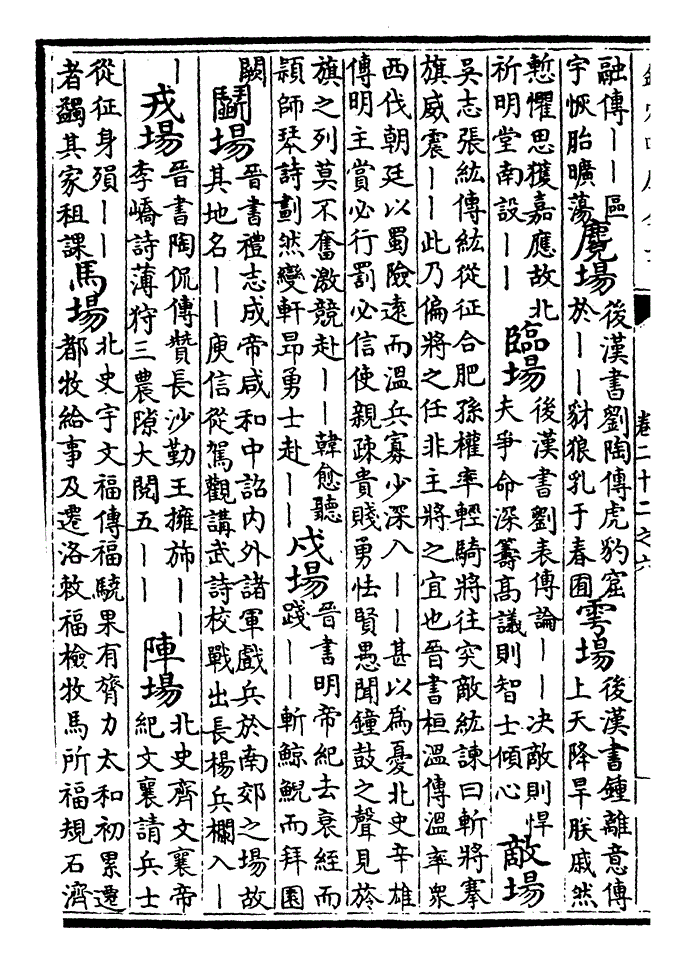 融傳一一區
宇恢胎曠蕩
麑場
後漢書劉陶傳虎豹窟
於一一豺狼乳于春囿
雩場
後漢書鍾離意傳
上天降旱朕戚然
慙懼思獲嘉應故北
祈明堂南設一一
臨場
後漢書劉表傳論一一决敵則悍
夫爭命深籌髙議則智士傾心
敵場
吳志張紘傳紘從征合肥孫權率輕騎將往突敵紘諫曰斬將搴
旗威震一一此乃偏將之任非主將之宜也晉書桓溫傳溫率衆
西伐朝廷以蜀險遠而溫兵寡少深入一一甚以為憂北史辛雄
傳明主賞必行罰必信使親疎貴賤勇怯賢愚聞鐘鼓之聲見於
旗之列莫不奮激競赴一一韓愈聽
頴師琴詩劃然變軒昂勇士赴一一
戍場
晉書明帝紀去衰絰而
踐一一斬鯨鯢而拜園
闕
鬭場
晉書禮志成帝咸和中詔内外諸軍戲兵於南郊之場故
其地名一一庾信從駕觀講武詩校戰出長楊兵欄入一
一
戎場
晉書陶侃傳贊長沙勤王擁斾一一
李嶠詩薄狩三農隙大閱五一一
陣場
北史齊文襄帝
紀文襄請兵士
從征身殞一一
者蠲其家租課
馬場
北史宇文福傳福驍果有膂力太和初累遷
都牧給事及遷洛敕福檢牧馬所福規石濟
卷二十二之六